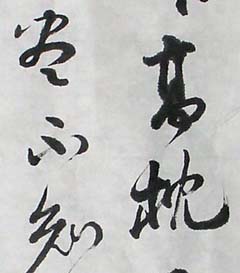 高枕
尽不知